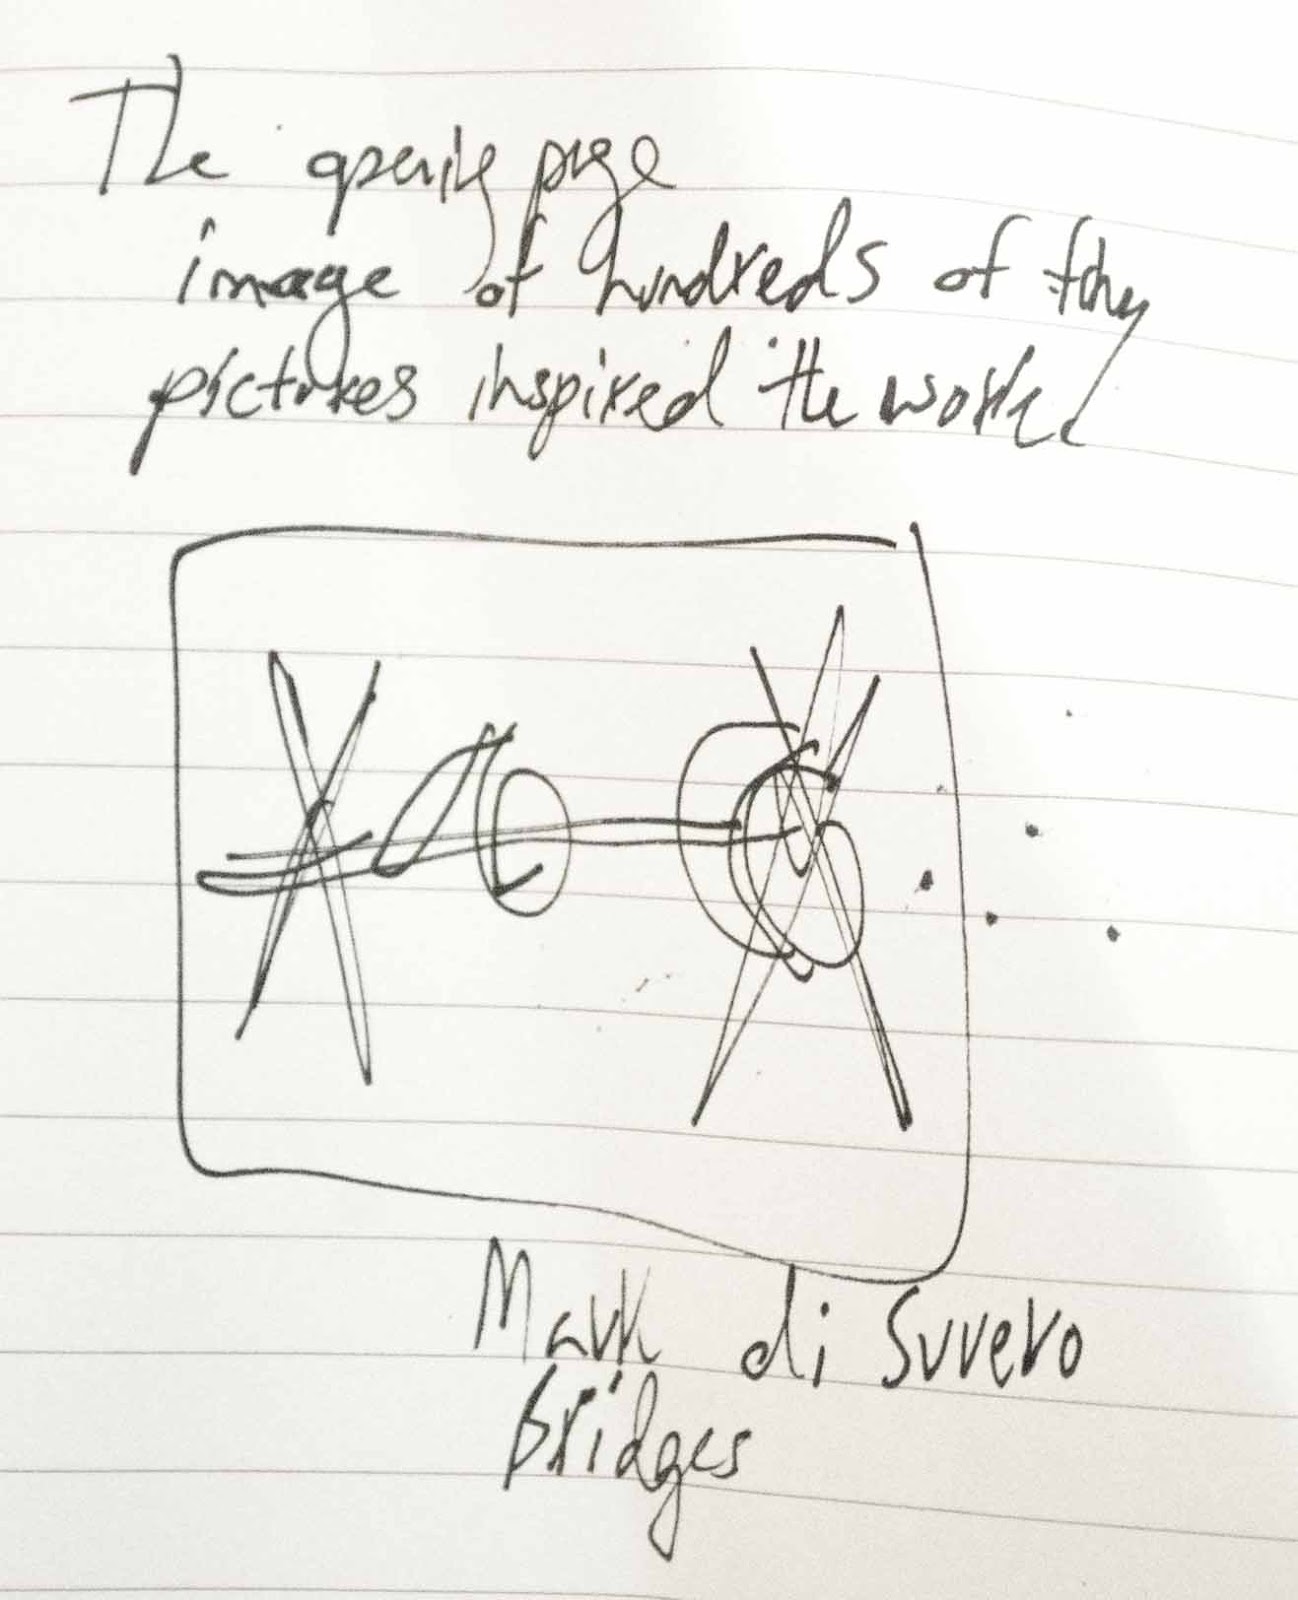 The opening page
image of hundreds of tiny
pictures inspired the work.
Mark di Suvero
bridges